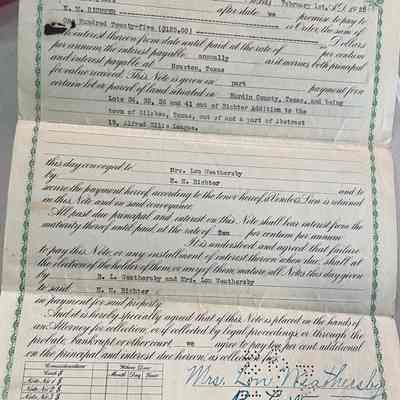 February 1st, A.D. 19
after date, we promise to pay to
or Order, the sum of
One Hundred Twenty-Five ($125.00) Dollars
with interest thereon from date until paid at the rate of per centum
per annum, the interest payable annually as it accrues, both principal
and interest payable at Houston, Texas
for value received. This Note is given in part payment for a
certain lot or parcel of land situated in Hardin County, Texas, and being
Lots 34, 35, 36 and 41 out of Richter Addition to the
town of Silsbee, Texas, out of and a part of Abstract
19, Alfred Ellis League.
this day conveyed to Mrs. Lon Weathersby
by H. H. Richter and to
secure the payment hereof, according to the tenor hereof, a Vendor's Lien is retained
in this Note and in said conveyance.
All past due principal and interest on this Note shall bear interest from the
maturity thereof until paid at the rate of Ten per centum per annum.
It is understood and agreed that failure
to pay this Note, or any installment of interest thereon when due, shall at
the election of the holder of them, or any of them, mature all Notes this day given
by R. L. Weathersby and Mrs. Lon Weathersby
to said H. H. Richter
in payment for said property.
And it is hereby specially agreed that if this Note is placed in the hands of
an Attorney for collection, or if collected by legal proceedings or through the
probate, bankrupt or other court, we agree to pay ten per cent. additional
on the principal and interest due hereon, as
Mrs. Lon Weathersby
Consideration
When Due
Cash $
Month Day Year
Note No. 1 $
Note No. 2 $
Note No. 3 $